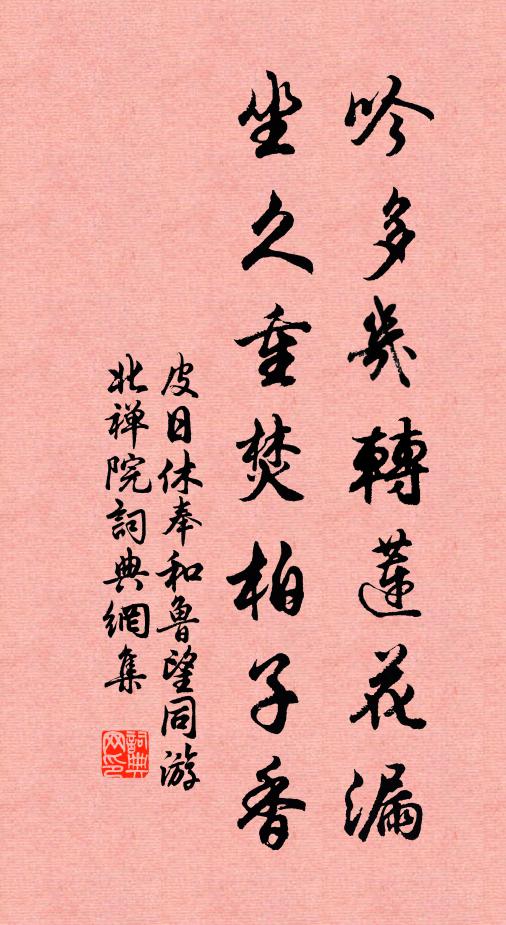 吟多幾轉蓮花漏
坐久重焚柏子香
皮日休奉和魯望同游
北禅院詞典網集
詞典
网印